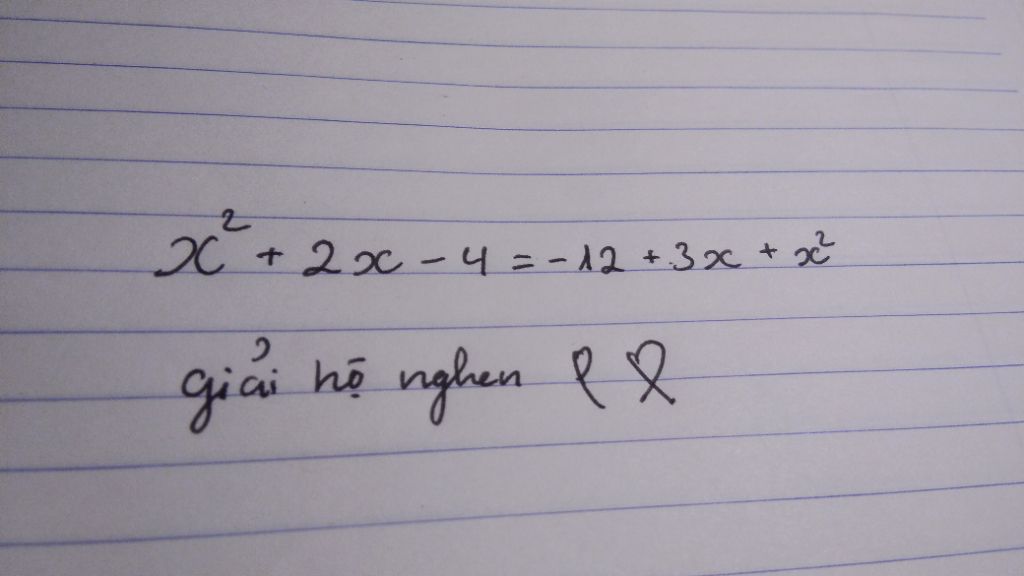 x² + 2x - 4 = -12 + 3x + x²
giải hộ nghen